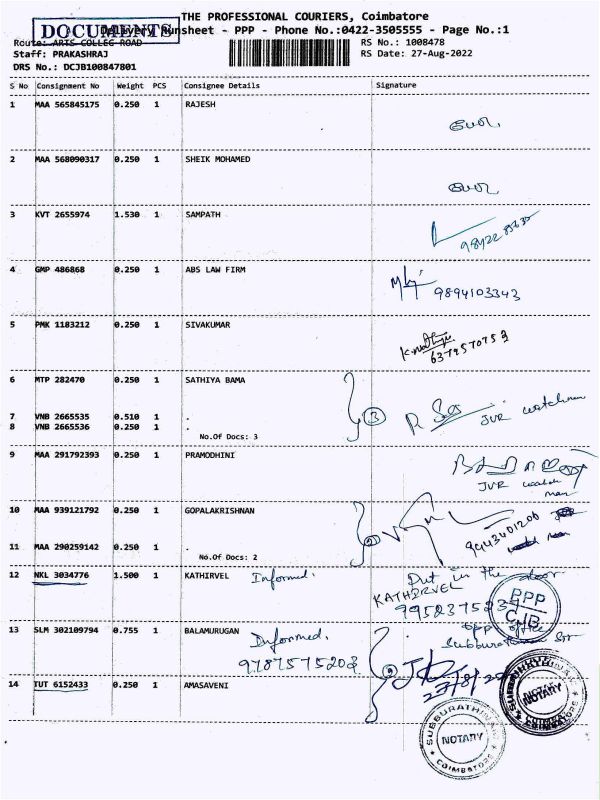 THE PROFESSIONAL COURIERS, Coimbatore
DOCUMENTS
Delivery Runsheet - PPP - Phone No.:0422-3505555 - Page No.:1
Route: ARTS COLLEG ROAD
RS No.: 1008478
Staff: PRAKASHRAJ
RS Date: 27-Aug-2022
DRS No.: DCJB100847801
S No Consignment No Weight PCS Consignee Details Signature
1 MAA 565845175 0.250 1 RAJESH
2 MAA 568090317 0.250 1 SHEIK MOHAMED
3 KVT 2655974 1.530 1 SAMPATH
4 GMP 486868 0.250 1 ABS LAW FIRM
9894103343
5 PMK 1183212 0.250 1 SIVAKUMAR
6379570753
6 MTP 282470 0.250 1 SATHIYA BAMA
7 VNB 2665535 0.510 1 .
3
JVR watchman
8 VNB 2665536 0.250 1 .
No.Of Docs: 3
9 MAA 291792393 0.250 1 PRAMODHINI
JVR watch
man
10 MAA 939121792 0.250 1 GOPALAKRISHNAN
9943401200
11 MAA 290259142 0.250 1 .
No.Of Docs: 2
12 NKL 3034776 1.500 1 KATHIRVEL Informed. Put in the door
KATHIRVEL
PPP
CJB
13 SLM 302109794 0.755 1 BALAMURUGAN Informed.
opp office
9787575203
14 TUT 6152433 0.250 1 AMASAVENI
27/8/22
SUBBURATHINAM
NOTARY
COIMBATORE
NOTARY
COIMBATORE